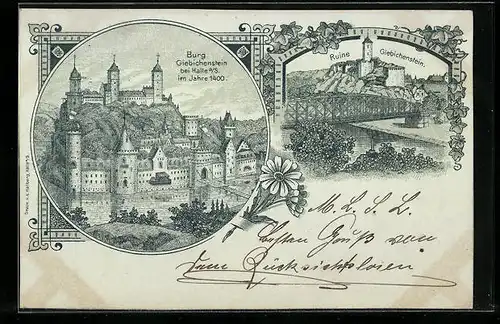 Burg
Giebichenstein
bei Halle a/S.
im Jahre 1400.
Ruine Giebichenstein.
M. L. S. L.
Besten Gruß von
dem Rücksichtslosen